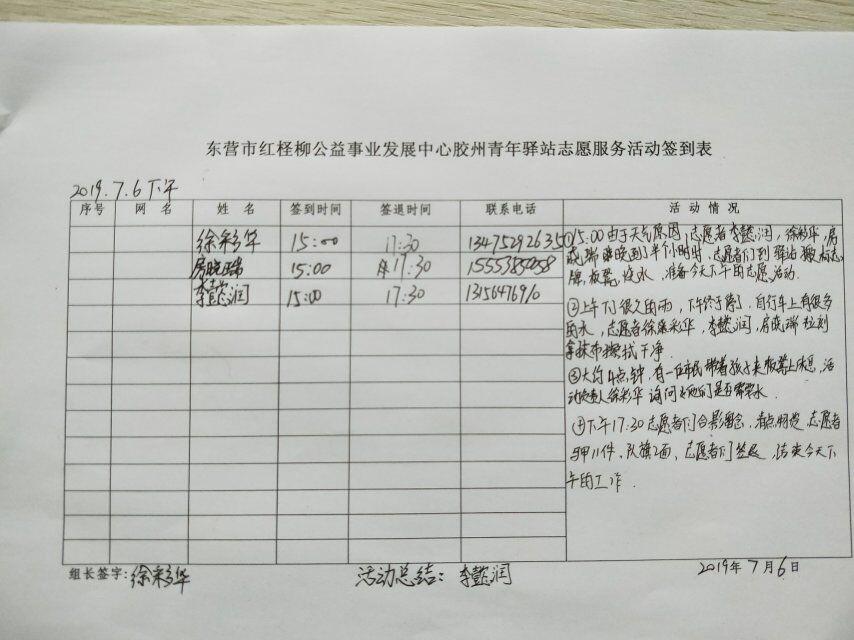 东营市红柽柳公益事业发展中心胶州青年驿站志愿服务活动签到表
2019.7.6下午
序号 网名 姓名 签到时间 签退时间 联系电话 活动情况
徐彩华 15:00 17:30 13475292635
房晓瑞 15:00 17:30
李懿润 15:00 17:30
①15:00由于天气原因,志愿者李懿润,徐彩华,房
晓瑞 晚到半个小时,志愿者们到驿站 标志
牌,板凳,饮水,准备今天下午的志愿活动.
②上午下了很久的雨,下午终于停了,自行车上有很多
雨水,志愿者徐彩华,李懿润,房晓瑞立刻
拿抹布擦拭干净.
③大约4点钟,有一位市民带着孩子来板凳上休息,活
动负责人徐彩华询问他们是否需要水.
④下午17:30志愿者们合影留念,清点物资,志愿者
马甲11件,队旗2面,志愿者们签退,结束今天下
午的工作.
组长签字:徐彩华 活动总结:李懿润 2019年7月6日